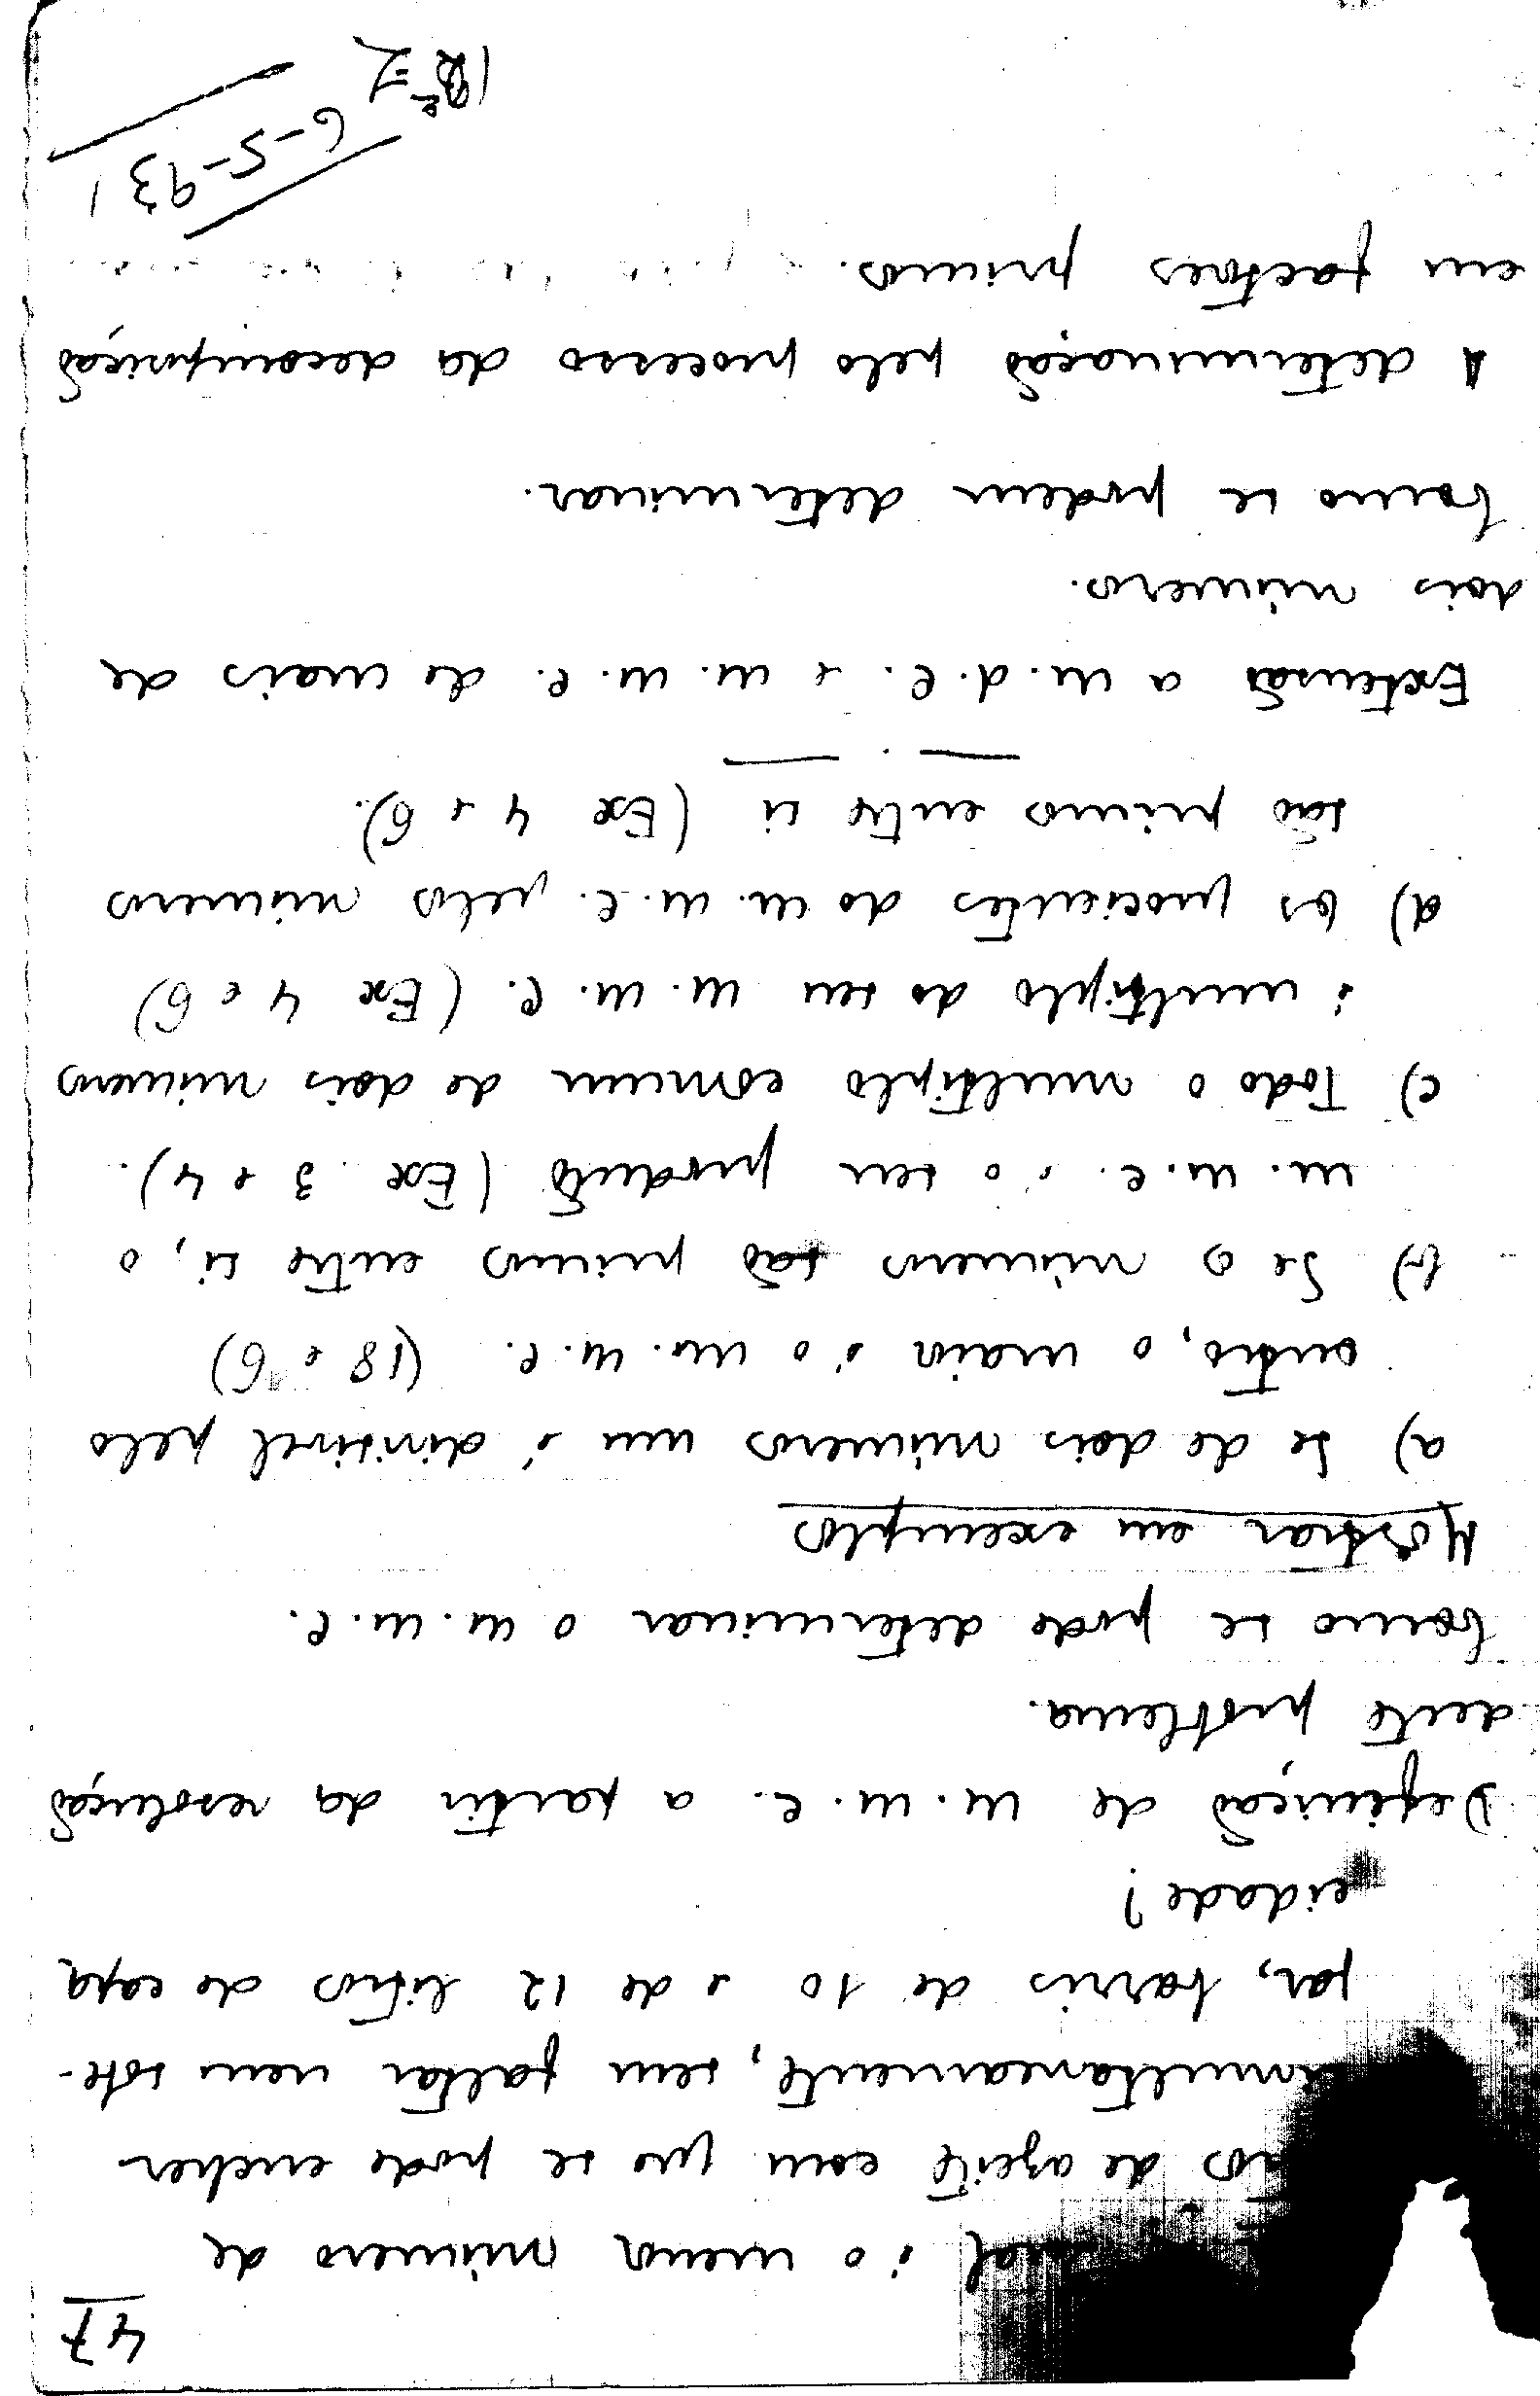 47
qual é o menor número de
litros de azeite com que se pode encher
simultaneamente, sem faltar nem sobe-
jar, barris de 10 e de 12 litros de capa
cidade?
Definição de m. m. c. a partir da resolução
deste problema.
Como se pode determinar o m. m. c.
Mostrar em exemplos
a) Se de dois números um é divisível pelo
outro, o maior é o m. m. c. (18 e 6)
b) Se os números são primos entre si, o
m. m. c. é o seu produto (Ex 3 e 4).
c) Todo o multiplo comum de dois números
é multiplo do seu m. m. c. (Ex 4 e 6)
d) Os quocientes do m. m. c. pelos números
são primos entre si (Ex 4 e 6).
Extensão a m. d. c. e m. m. c. de mais de
dois números.
Como se podem determinar.
A determinação pelo processo da decomposição
em factores primos.
6-5-93